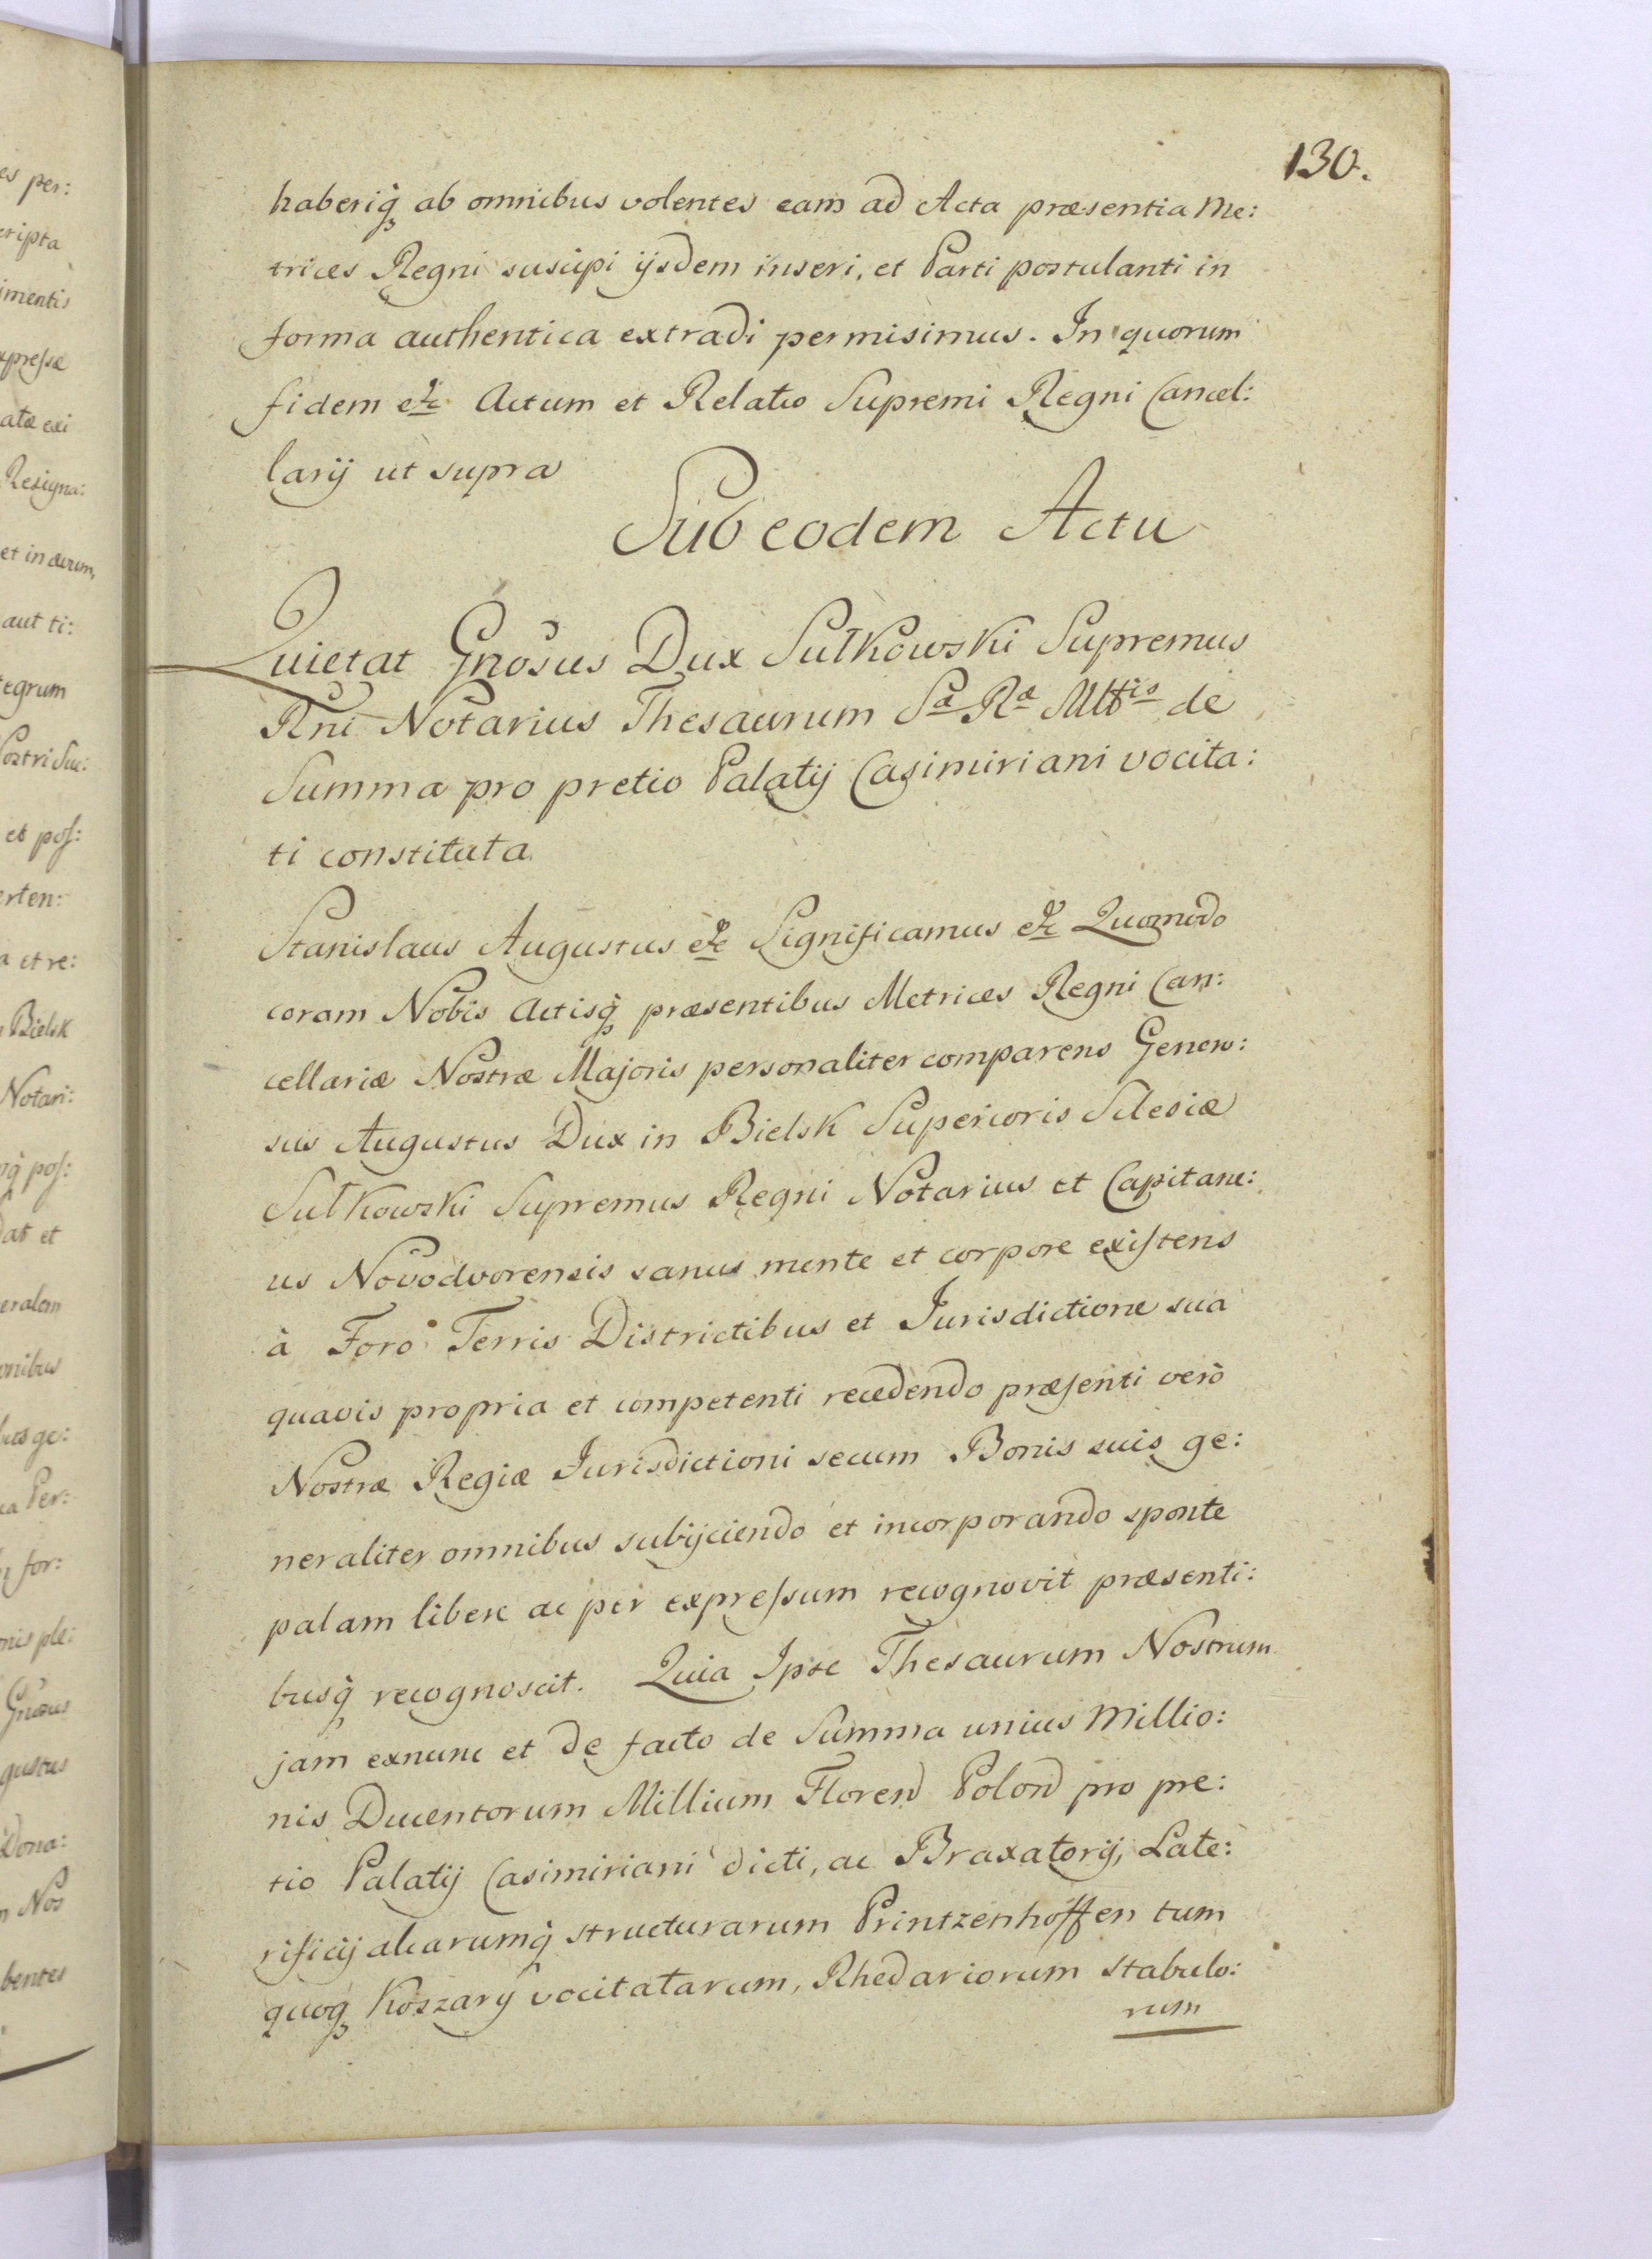 130.
haberiq̃ ab omnibus volentes eam ad Acta præsentia Me:
trices Regni suscipi ijsdem inseri, et Parti postulanti in
forma authentica extradi permisimus. In quorum
fidem etc Actum et Relatio Supremi Regni Cancel:
larij ut supra
Sub eodem Actu
Quietat Gnosus Dux Sułkowski Supremus
Rni Notarius Thesaurum Sæ Ræ Mttis de
Summa pro pretio Palatij Casimiriani vocita:
ti constituta
Stanislaus Augustus etc Significamus etc Quomodo
coram Nobis Actisq̃ præsentibus Metrices Regni Can:
cellariæ Nostræ Majoris personaliter comparens Genero:
sus Augustus Dux in Bielsk Superioris Silesiæ
Sułkowski Supremus Regni Notarius et Capitane:
us Novodvorensis sanus mente et corpore existens
à Foro Terris Districtibus et Jurisdictione sua
quavis propria et competenti recedendo præsenti verò
Nostræ Regiæ Jurisdictioni secum Bonis suis ge:
neraliter omnibus subijciendo et incorporando sponte
palam libere ac per expressum recognovit præsenti:
busq̃ recognoscit. Quia Ipse Thesaurum Nostrum
jam exnunc et de facto de Summa unius Millio:
nis Ducentorum Millium Floren Polon pro pre:
tio Palatij Casimiriani dicti, ac Braxatorij, Late:
rificij aliarumq̃ structurarum Printzenhoffen tum
quoq̃ Koszary vocitatarum, Rhedariorum stabulo:
rum
es per:
cripta
imentis
xpressæ
atæ exi
Resigna:
et in ævum,
aut ti:
tegrum
Nostri Suc:
et pos:
erten:
a et re:
Bielsk
Notari:
q̃ pos:
dat et
eralem
onibus
bus ge:
ca Per:
for:
nis ple:
Gnosus
gustus
Dona:
m Nos
bentes